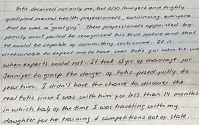 Fotis deceived not only me, but also lawyers and highly
qualified mental health professionals, convincing everyone
that he was a "good guy". These professionals opposed the
family court failed to recognized his true nature and that
he could be capable of committing such crime. It is
unreasonable to expect me to have seen Fotis for who he was
when experts could not. It took 13 yrs of marriage for
Jennifer to grasp the danger of Fotis posed fully to
fear him. I didn't have the chance to discover the
real Fotis since I was with him for less than 18 months
in which half of the time I was traveling with my
daughter for her training & competitions out of state.